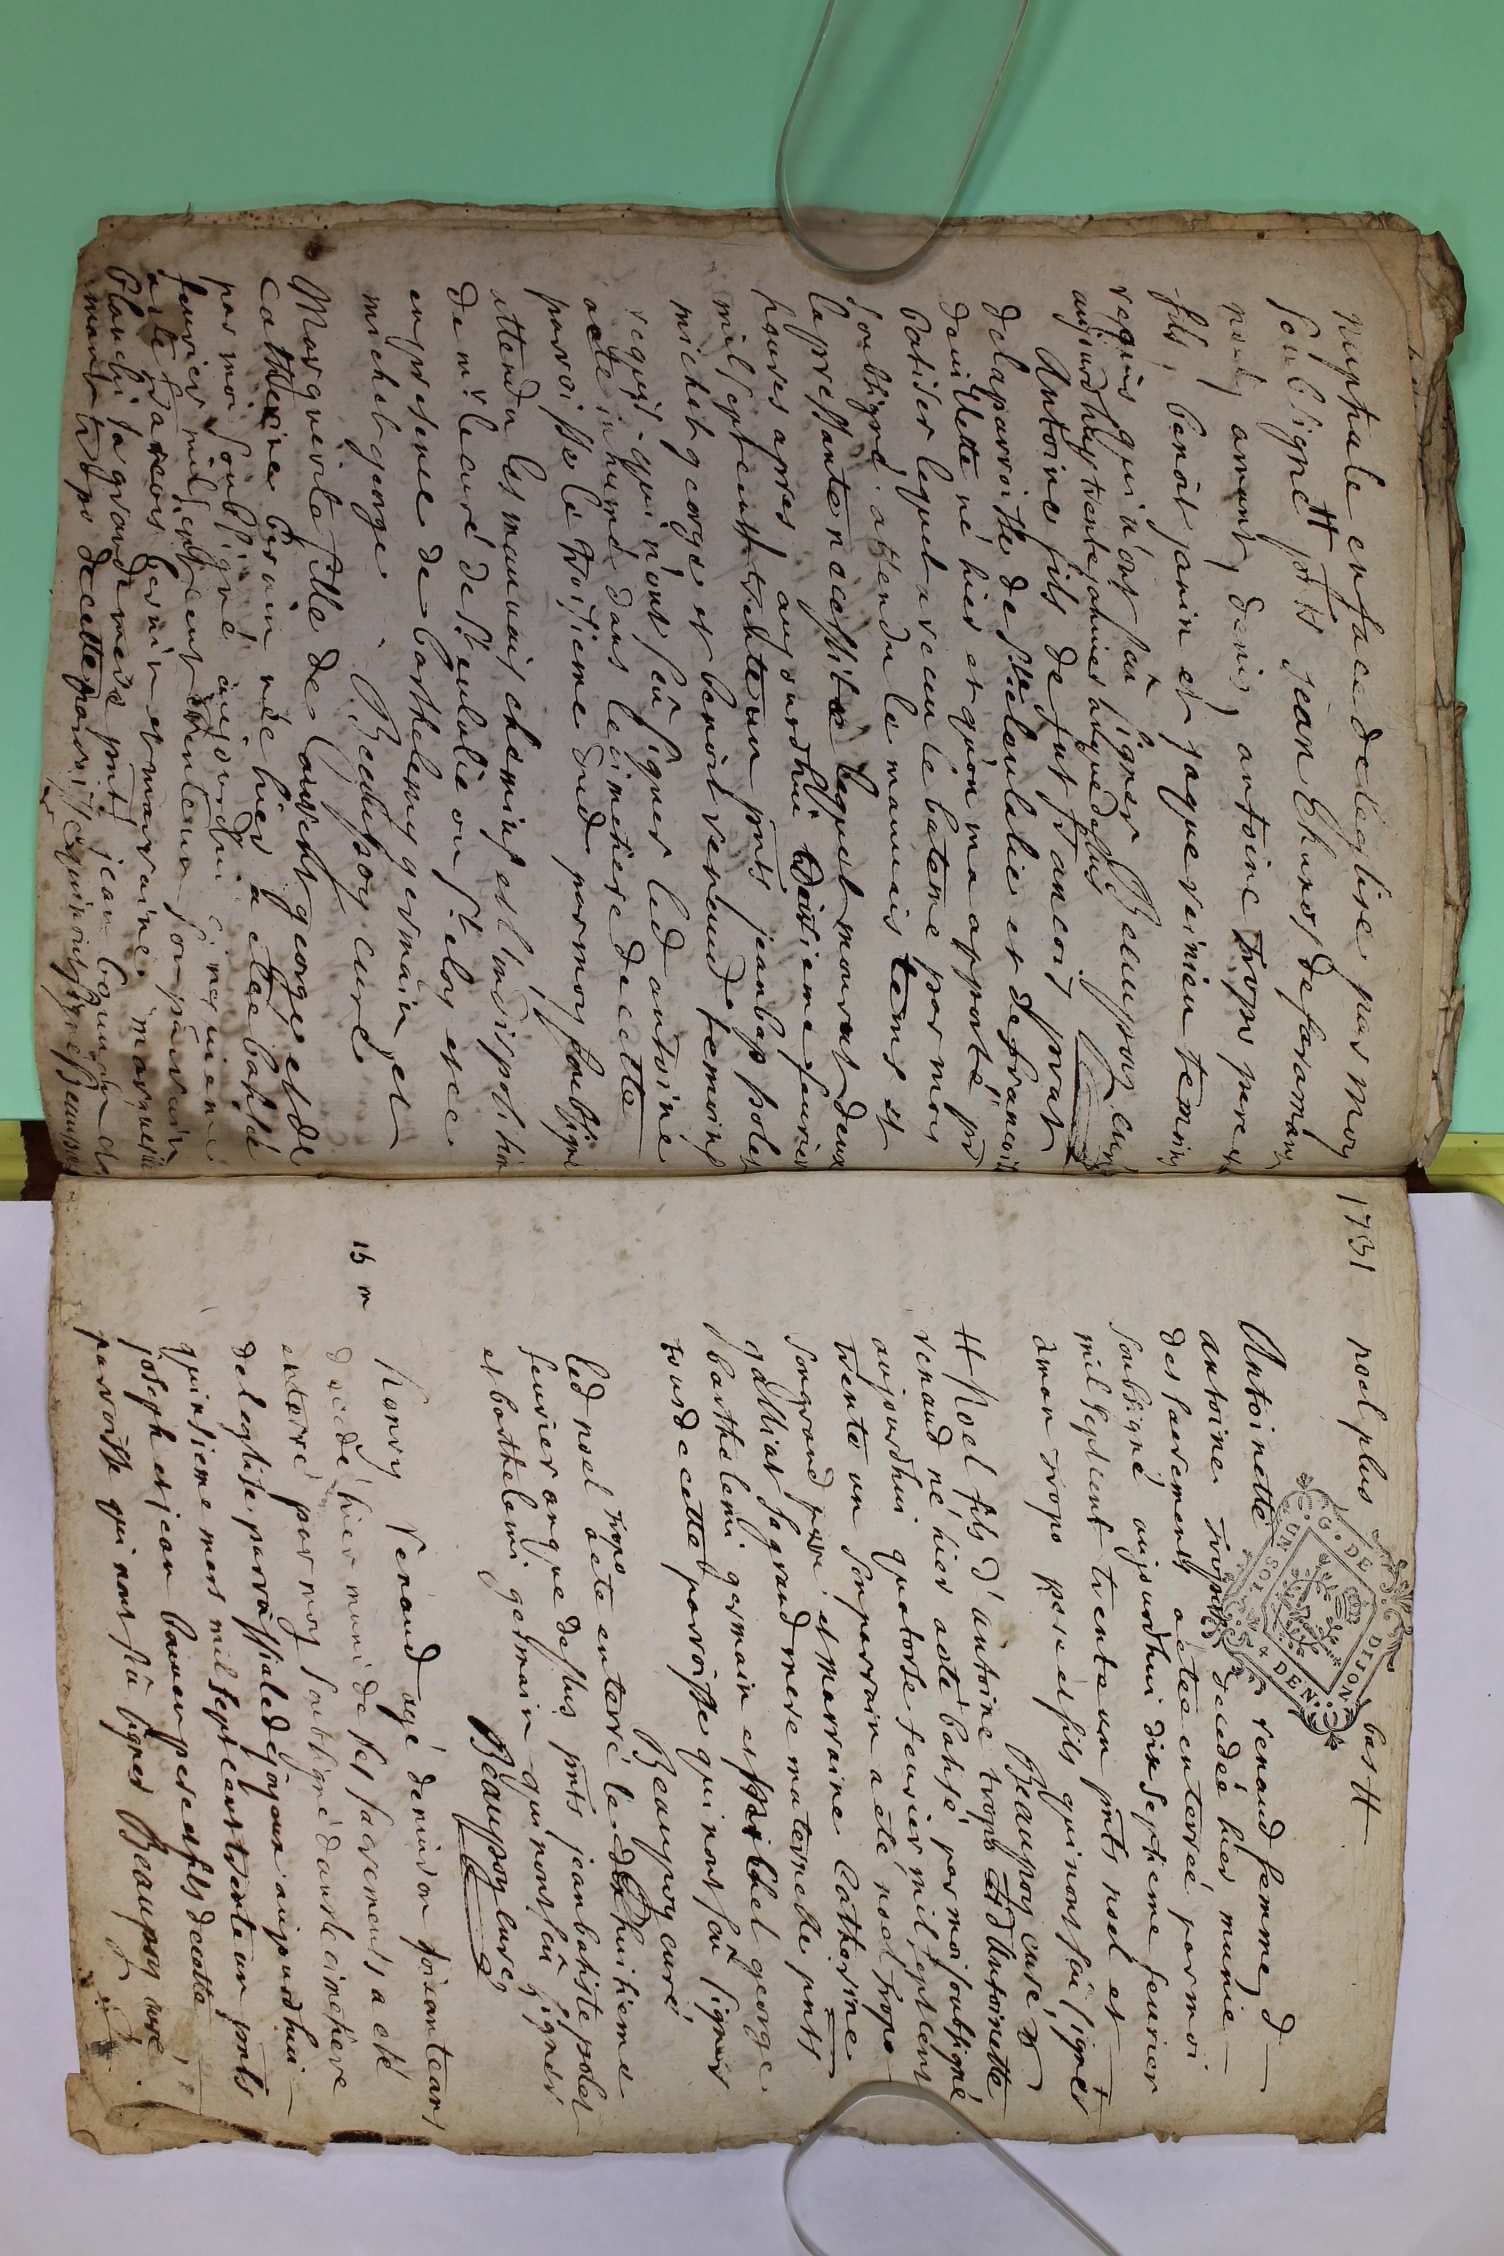 nuptiale en face de leglise par moy
soubsigné # pnts jean Chunos de faramàns
noel, amant, denis, antoine Tropo pere et
fils, benoit janin et jaque veinieu temoins
requis qui n'ont sceu signer Beaupoy curé
aujourdhuy trente janvier susque dessus
Antoine fils de fut francois prat
de la parroisse de Ste eulalie et de francoise
denillette né hier et qu'on m'a apporté pr
batiser lequel a receu le bateme par moy
soubsigné attendu le mauvais tems et
la pressante necessité lequel mourut deux
heures apres aujourdhui troisieme fevrier
mil sept cents trente un pnts jean bap polet
michel george et benoit renaud temoins
requis qui n'ont sceu signer led antoine
a eté inhumé dans le cimetiere de cette
paroisse le troisieme dud par moy soubsigné
attendu les mauvais chemins et l'indisposition
de mr le curé de Ste eulalie ou St eloy et ce
en presence de barthelemy germain et
michel george Beaupoy curé
Marguerite fille de Laurent george et de
Catherine birain née hier a etee batisé
par moi soubsigné aujourdui cinquieme
fevrier mil sept cent trente un son parrain
a eté francois bernin et marraine marguerite
blanchi sa grande mere pnts jean bouuier
maurdt tropo de cette parroisse qui n'ont signé Beaupoy
1731
noel plus bas #
G. DE DIJON
UN SOL
DEN.
Antoinette renaud femme d
antoine Tropo decedeé hier munie
des sacrements a etee enterreé par moi
soubsigné aujourdhui dixseptieme fevrier
mil septcent trente un pnts noel et
aman tropo pere et fils qui n'ont sceu signer
Beaupoy curé
# Noel fils d'antoine tropo et d'Antoinette
renaud né hier a eté batisé par moi soubsigné
aujourdhui quatorse fevrier mil septcent
trente un son parrain a eté noel tropo
son grand pere et marraine Catherine
galliat sa grand mere maternelle pnts
barthelemi germain et michel george
tous de cette parroisse qui n'ont sceu signer
Beaupoy curé
led noel tropo a eté enterré le dixhuitieme
fevrier an que dessus pnts jean batiste polet
et barthelemi germain qui n'ont sceu signer
Beaupoy curé
15 m
honory renaud agé denviron soixante ans
decedé hier muni de ses sacrements a eté
enterré par moy soubsigné dans le cimetiere
de leglise parroissiale de joyeux aujourdhui
quinsieme mars mil sept cents trente un pnts
joseph et jean bauuen pere et fils de cette
parroisse qui n'ont sceu signer Beaupoy curé